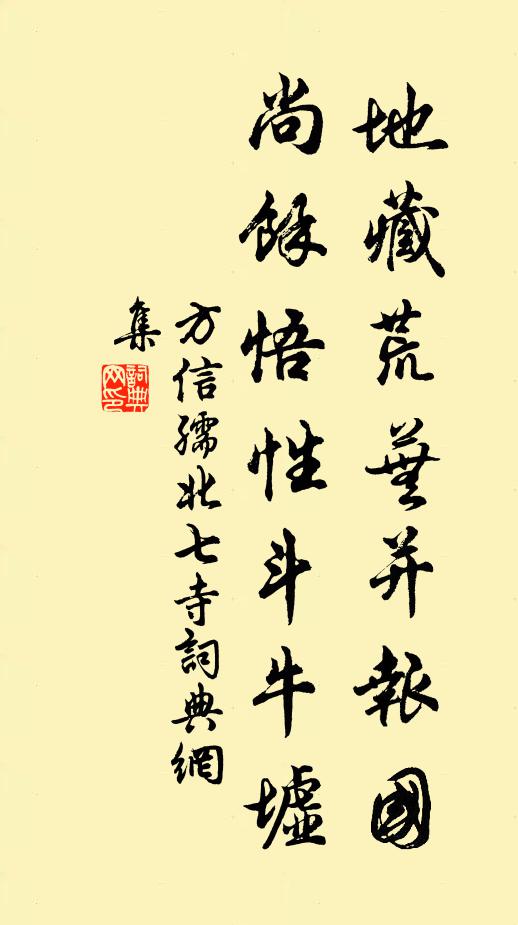 地藏荒蕪并報國
尚餘悟性斗牛墟
方信孺北七寺詞典網
集
詞典網印